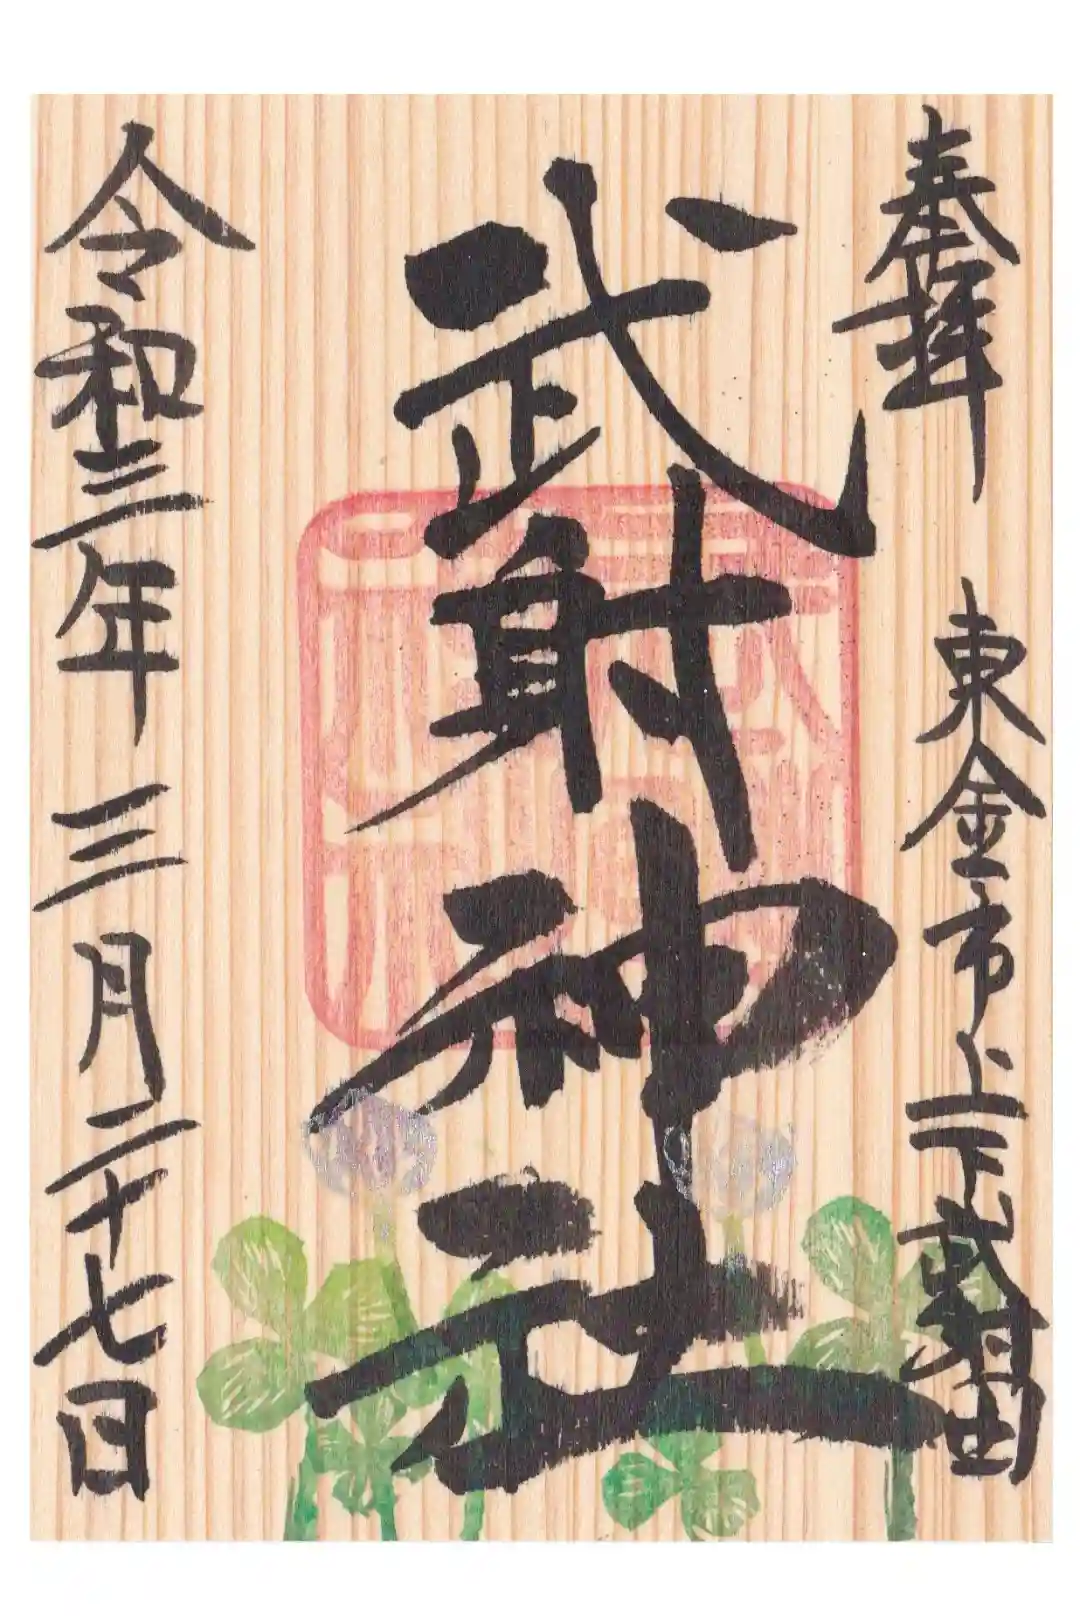 奉拝
東金市上武射田
武射神社
令和三年三月二十七日